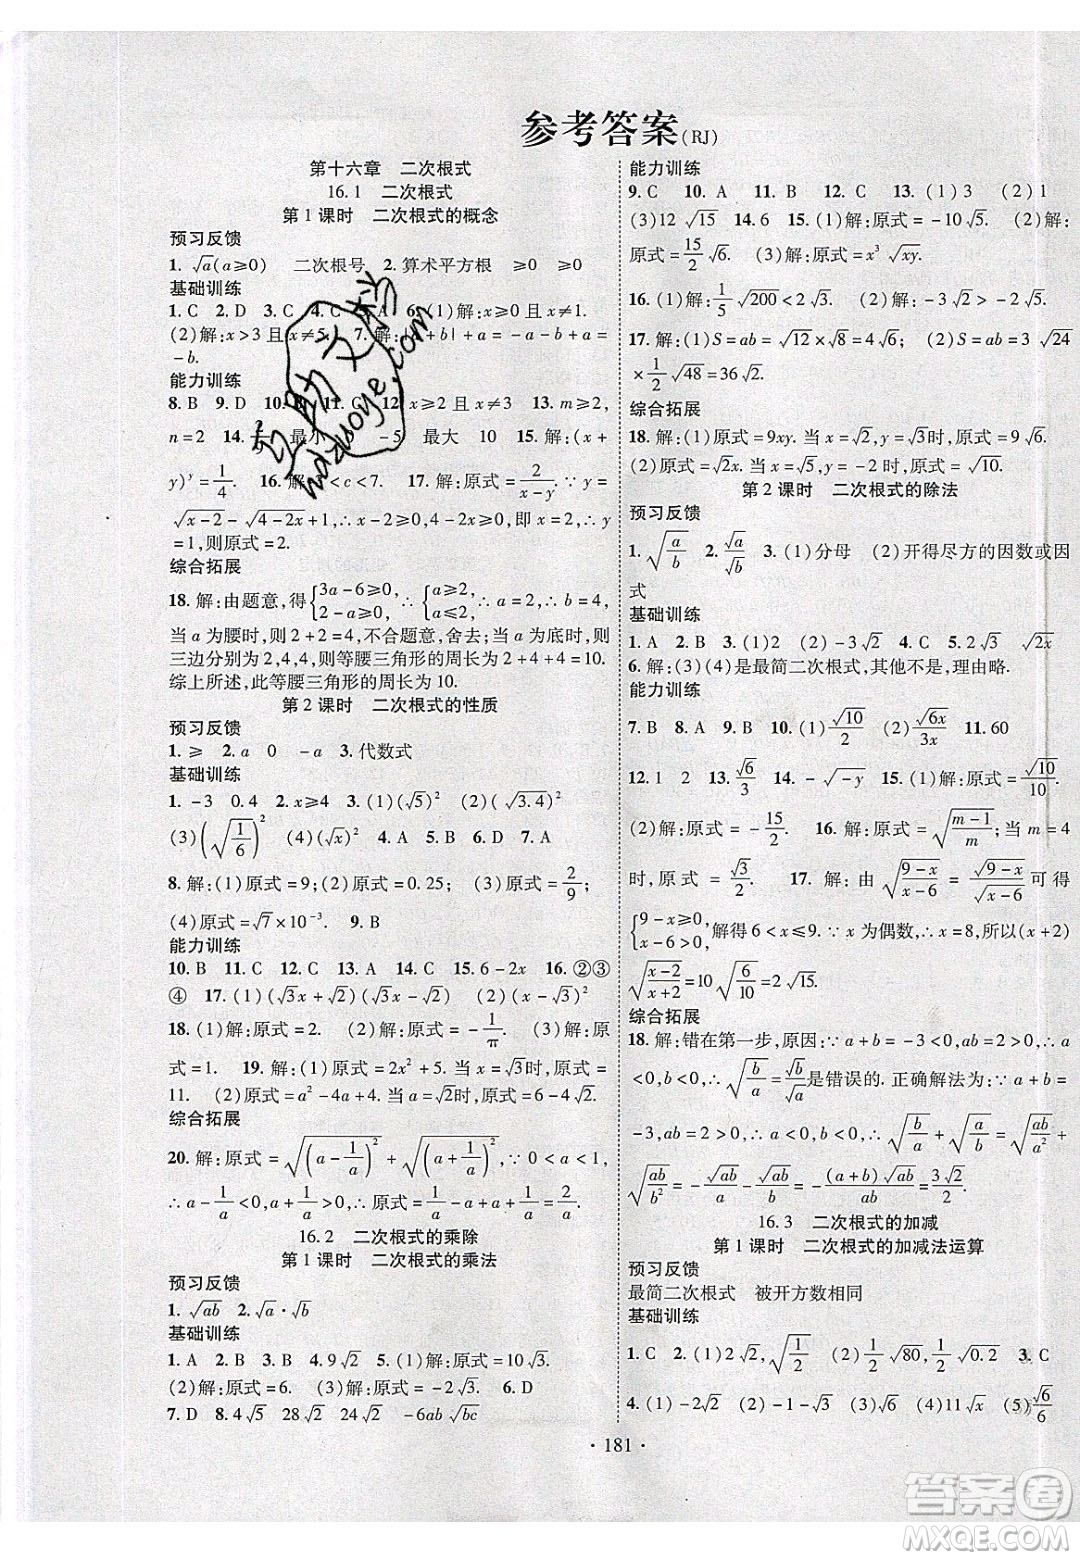 参考答案(RJ)
第十六章 二次根式
16.1 二次根式
第1课时 二次根式的概念
预习反馈
1. √a(a≥0) 二次根号 2. 算术平方根 ≥0 ≥0
基础训练
1. C 2. D 3. C 4. C 5. A 6. (1)解:x≥0 且 x≠1.
(2)解:x>3 且 x≠5. 7. 解:|a+b|+a=-a-b+a=
-b.
能力训练
8. B 9. D 10. B 11. C 12. x≥2 且 x≠3 13. m≥2,
n=2 14. 最小 -5 最大 10 15. 解:(x+
y)^y=1/4. 16. 解: <c<7. 17. 解:原式=2/(x-y). ∵y=
√(x-2)-√(4-2x)+1,∴x-2≥0,4-2x≥0,即x=2,∴y=
1,则原式=2.
综合拓展
18. 解:由题意,得{3a-6≥0, 2-a≥0,∴{a≥2, a≤2.∴a=2,∴b=4,
当 a 为腰时,则 2+2=4,不合题意,舍去;当 a 为底时,则
三边分别为 2,4,4,则等腰三角形的周长为 2+4+4=10.
综上所述,此等腰三角形的周长为 10.
第2课时 二次根式的性质
预习反馈
1. ≥ 2. a 0 -a 3. 代数式
基础训练
1. -3 0.4 2. x≥4 3. (1)(√5)² (2)(√3.4)²
(3)(√(1/6))² (4)(√x)² 4. A 5. D 6. B 7. A
8. 解:(1)原式=9;(2)原式=0.25;(3)原式=2/9;
(4)原式=√7×10⁻³. 9. B
能力训练
10. B 11. C 12. C 13. A 14. C 15. 6-2x 16. ②③
④ 17. (1)(√3x+√2)(√3x-√2) (2)(x-√3)²
18. (1)解:原式=2. (2)解:原式=-1/π. (3)解:原
式=1. 19. 解:(1)原式=2x²+5. 当x=√3时,原式=
11. (2)原式=a²-4a+4. 当a=√2时,原式=6-4√2.
综合拓展
20. 解:原式=√((a-1/a)²)+√((a+1/a)²),∵0<a<1,
∴a-1/a<0,a+1/a>0,∴原式=1/a-a+a+1/a=2/a.
16.2 二次根式的乘除
第1课时 二次根式的乘法
预习反馈
1. √ab 2. √a·√b
基础训练
1. A 2. B 3. D 4. 9√2 5. (1)解:原式=10√3.
(2)解:原式=6. (3)解:原式=-2√3. 6. D
7. D 8. 4√5 28√2 24√2 -6ab√bc
能力训练
9. C 10. A 11. B 12. C 13. (1)3 (2)1
(3)12√15 14. 6 15. (1)解:原式=-10√5. (2)解:
原式=15/2√2. (3)解:原式=x³√xy.
16. (1)解:1/5√200<2√3. (2)解:-3√2>-2√5.
17. 解:(1)S=ab=√12×√8=4√6. (2)S=ab=3√24
×1/2√48=36√2.
综合拓展
18. 解:(1)原式=9xy. 当x=√2,y=√3时,原式=9√6.
(2)原式=√2x. 当x=√5时,原式=√10.
第2课时 二次根式的除法
预习反馈
1. √(a/b) 2. √a/√b 3. (1)分母 (2)开得尽方的因数或因
式
基础训练
1. A 2. B 3. (1)2 (2)-3√2 4. C 5. 2√3 √2x
6. 解:(3)(4)是最简二次根式,其他不是,理由略.
能力训练
7. B 8. A 9. D 10. (1)√10/2 (2)√6x/3x 11. 60
12. 1 2 13. √6/3 14. -√-y 15. (1)解:原式=√10/10.
(2)解:原式=-15/2. 16. 解:原式=√((m-1)/m);当m=4
时,原式=√3/2. 17. 解:由√((9-x)/(x-6))=√(9-x)/√(x-6)可得
{9-x≥0, x-6>0,解得6<x≤9.∵x为偶数,∴x=8,所以(x+2)
√((x-2)/(x+2))=10√(6/10)=2√15.
综合拓展
18. 解:错在第一步,原因:∵a+b=-3<0,ab=2>0,∴a
<0,b<0,∴√(b/a)=√b/√a是错误的. 正确解法为:∵a+b=
-3,ab=2>0,∴a<0,b<0,∴√(b/a)+√(a/b)=√(ab/a²)+
√(ab/b²)=-√ab/a-√ab/b=-(a+b)√ab/ab=3√2/2.
16.3 二次根式的加减
第1课时 二次根式的加减法运算
预习反馈
最简二次根式 被开方数相同
基础训练
1. C 2. (1)2√2,√(1/2) (2)1/2√80,√0.2 3. C
4. (1)-√2 (2)√3 (3)-√2 (4)11√x (5)√6/6
·181·
答案圈
MXQE.COM